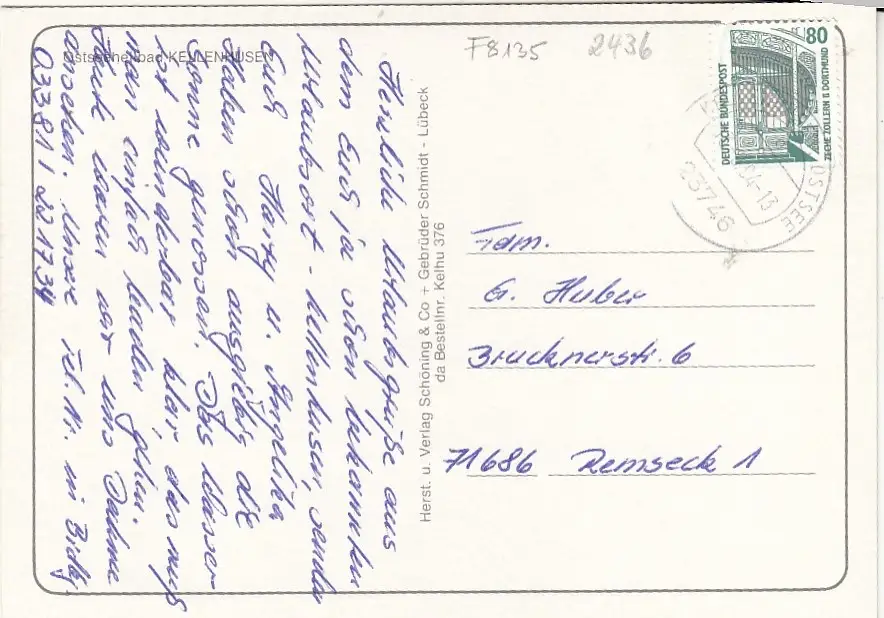 Ostseeheilbad KELLENHUSEN
Herzliche Urlaubsgrüße aus
dem Euch ja schon bekannten
Urlaubsort - Kellenhusen, senden
Euch Harry u. Angelika
Haben schon ausgiebig die
Sonne genossen. Das Wasser
ist wunderbar klar, das muß
man einfach baden gehen.
waren wir uns Dahme
ansehen. Unsere Tel. Nr. in
03381 / 221734
Herst. u. Verlag Schöning & Co + Gebrüder Schmidt - Lübeck
da Bestellnr. Kelhu 376
F8135 2436
80
DEUTSCHE BUNDESPOST
ZECHE ZOLLERN II DORTMUND
OSTSEE
23746
Fam.
G. Huber
Brucknerstr. 6
71686 Remseck 1